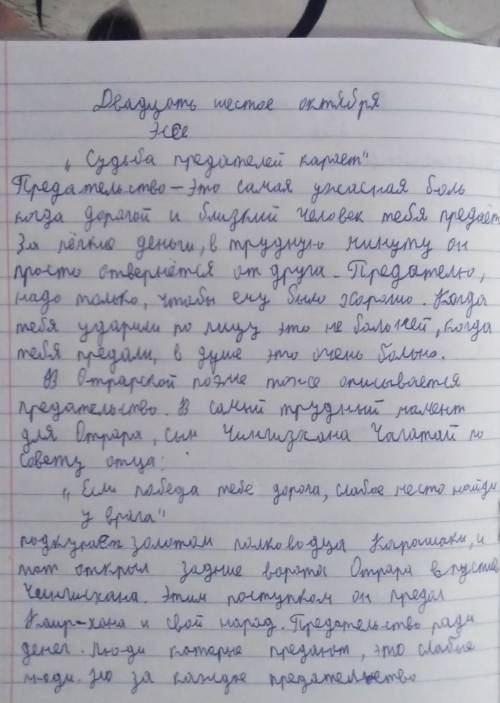 Двадцать шестое октября
Эссе
„Судьба предателей карает"
Предательство – это самая ужасная боль
когда дорогой и близкий человек тебя предаёт
За лёгкие деньги, в трудную минуту он
просто отвернётся от друга. Предателю,
надо только, чтобы ему было хорошо. Когда
тебя ударили по лицу это не больней, когда
тебя предали, в душе это очень больно.
В Отрарской поэме тоже описывается
предательство. В самый трудный момент
для Отрара, сын Чингизхана Чагатай по
Совету отца:
„Если победа тебе дорога, слабое место найди
у врага"
подкупает золотом полководца Карашоки, и
тот открыл задние ворота Отрара впустив
Чингисхана. Этим поступком он предал
Каир-хана и свой народ. Предательство ради
денег. Люди которые предают, это слабые
люди. Но за каждое предательство